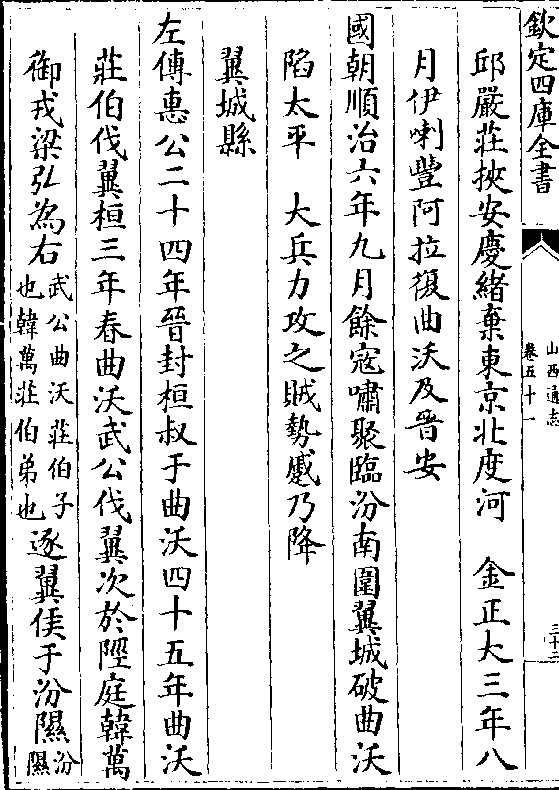 欽定四庫全書
山西通志
卷五十一
三十三
邱嚴莊挾安慶緒棄東京北度河　金正大三年八
月伊喇豐阿拉復曲沃及晉安
國朝順治六年九月餘寇嘯聚臨汾南圍翼城破曲沃
陷太平　大兵力攻之賊勢蹙乃降
翼城縣
左傳惠公二十四年晉封桓叔于曲沃四十五年曲沃
莊伯伐翼桓三年春曲沃武公伐翼次於陘庭韓萬
御戎梁弘為右武公曲沃莊伯子也韓萬莊伯弟也逐翼侯于汾隰汾隰